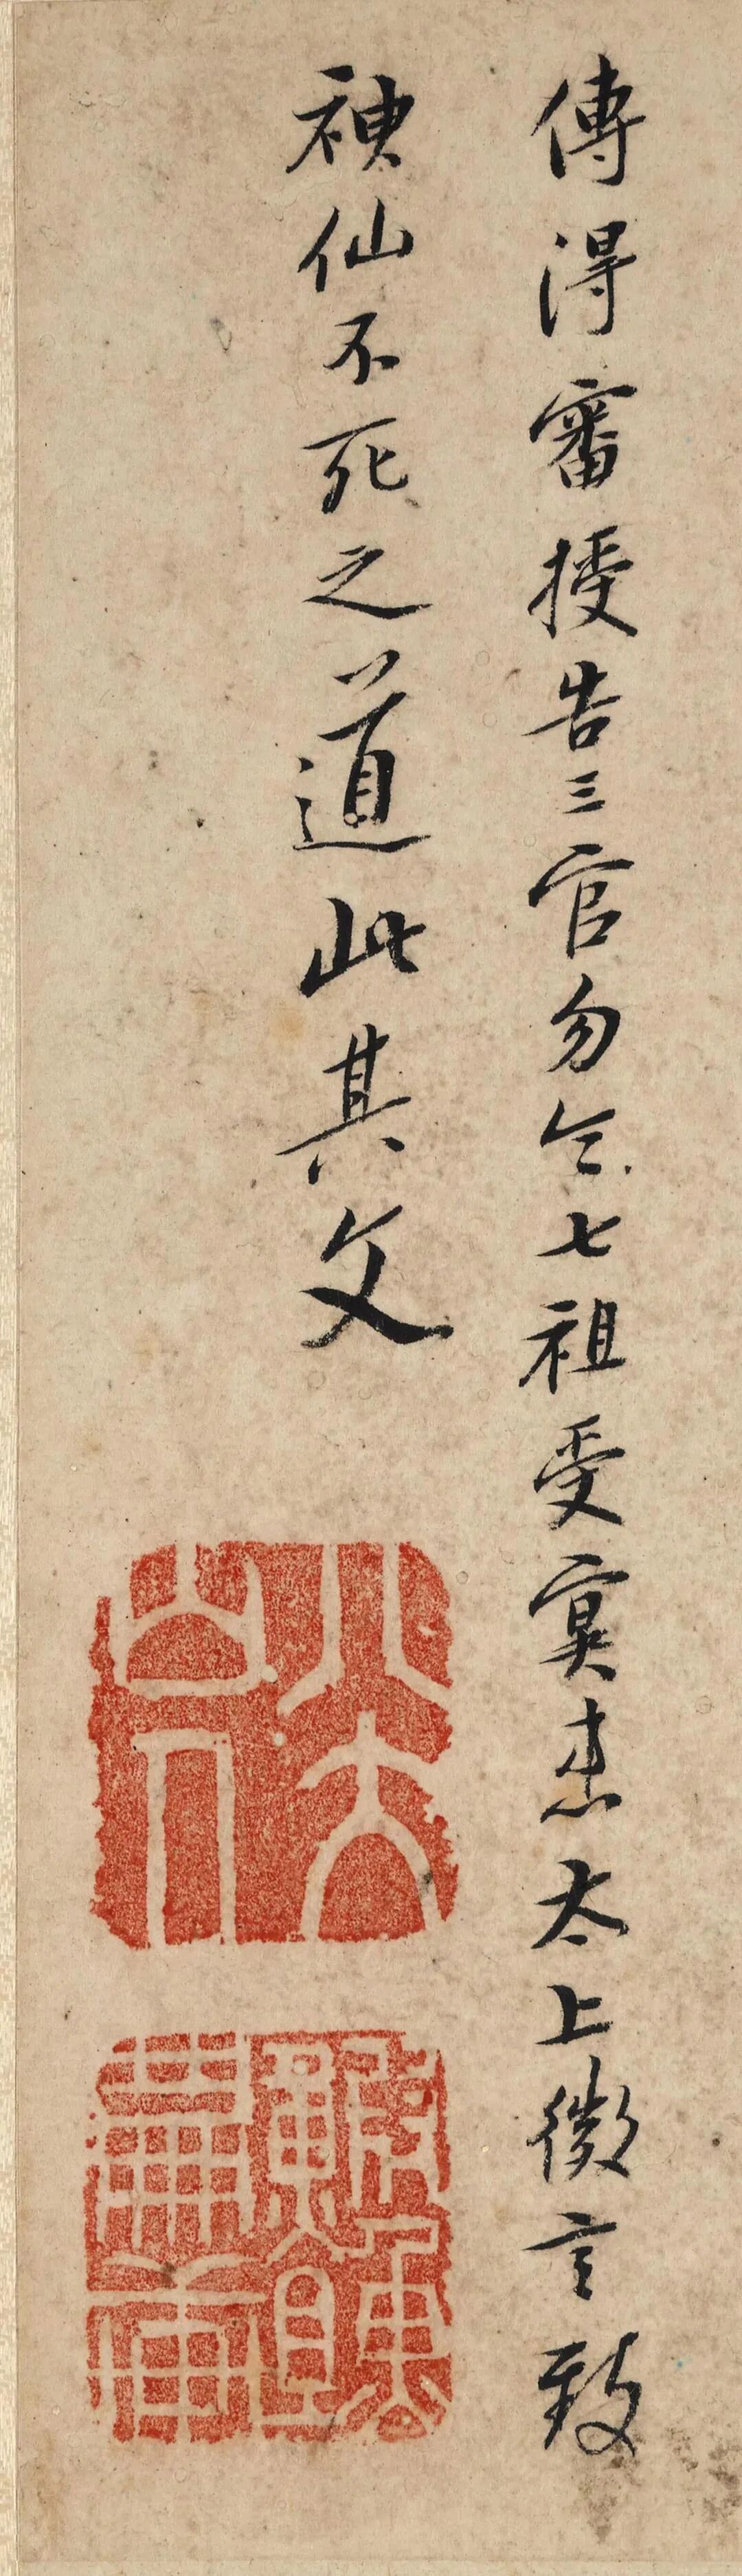 傳得審授告三官勿令七祖受冥患太上微言致
神仙不死之道此其文